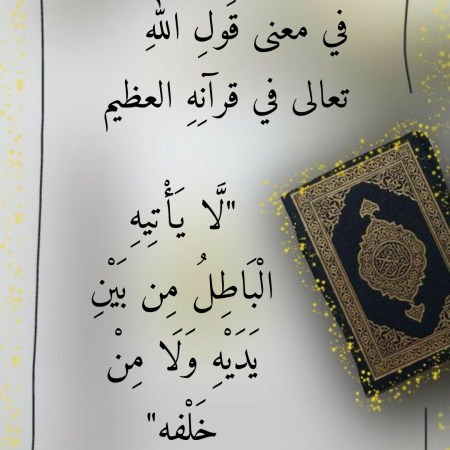 في معنى قَولِ اللهِ
تعالى في قرآنِهِ العظيم
"لَّا يَأْتِيهِ
الْبَاطِلُ مِن بَيْنِ
يَدَيْهِ وَلَا مِنْ
خَلْفِه"